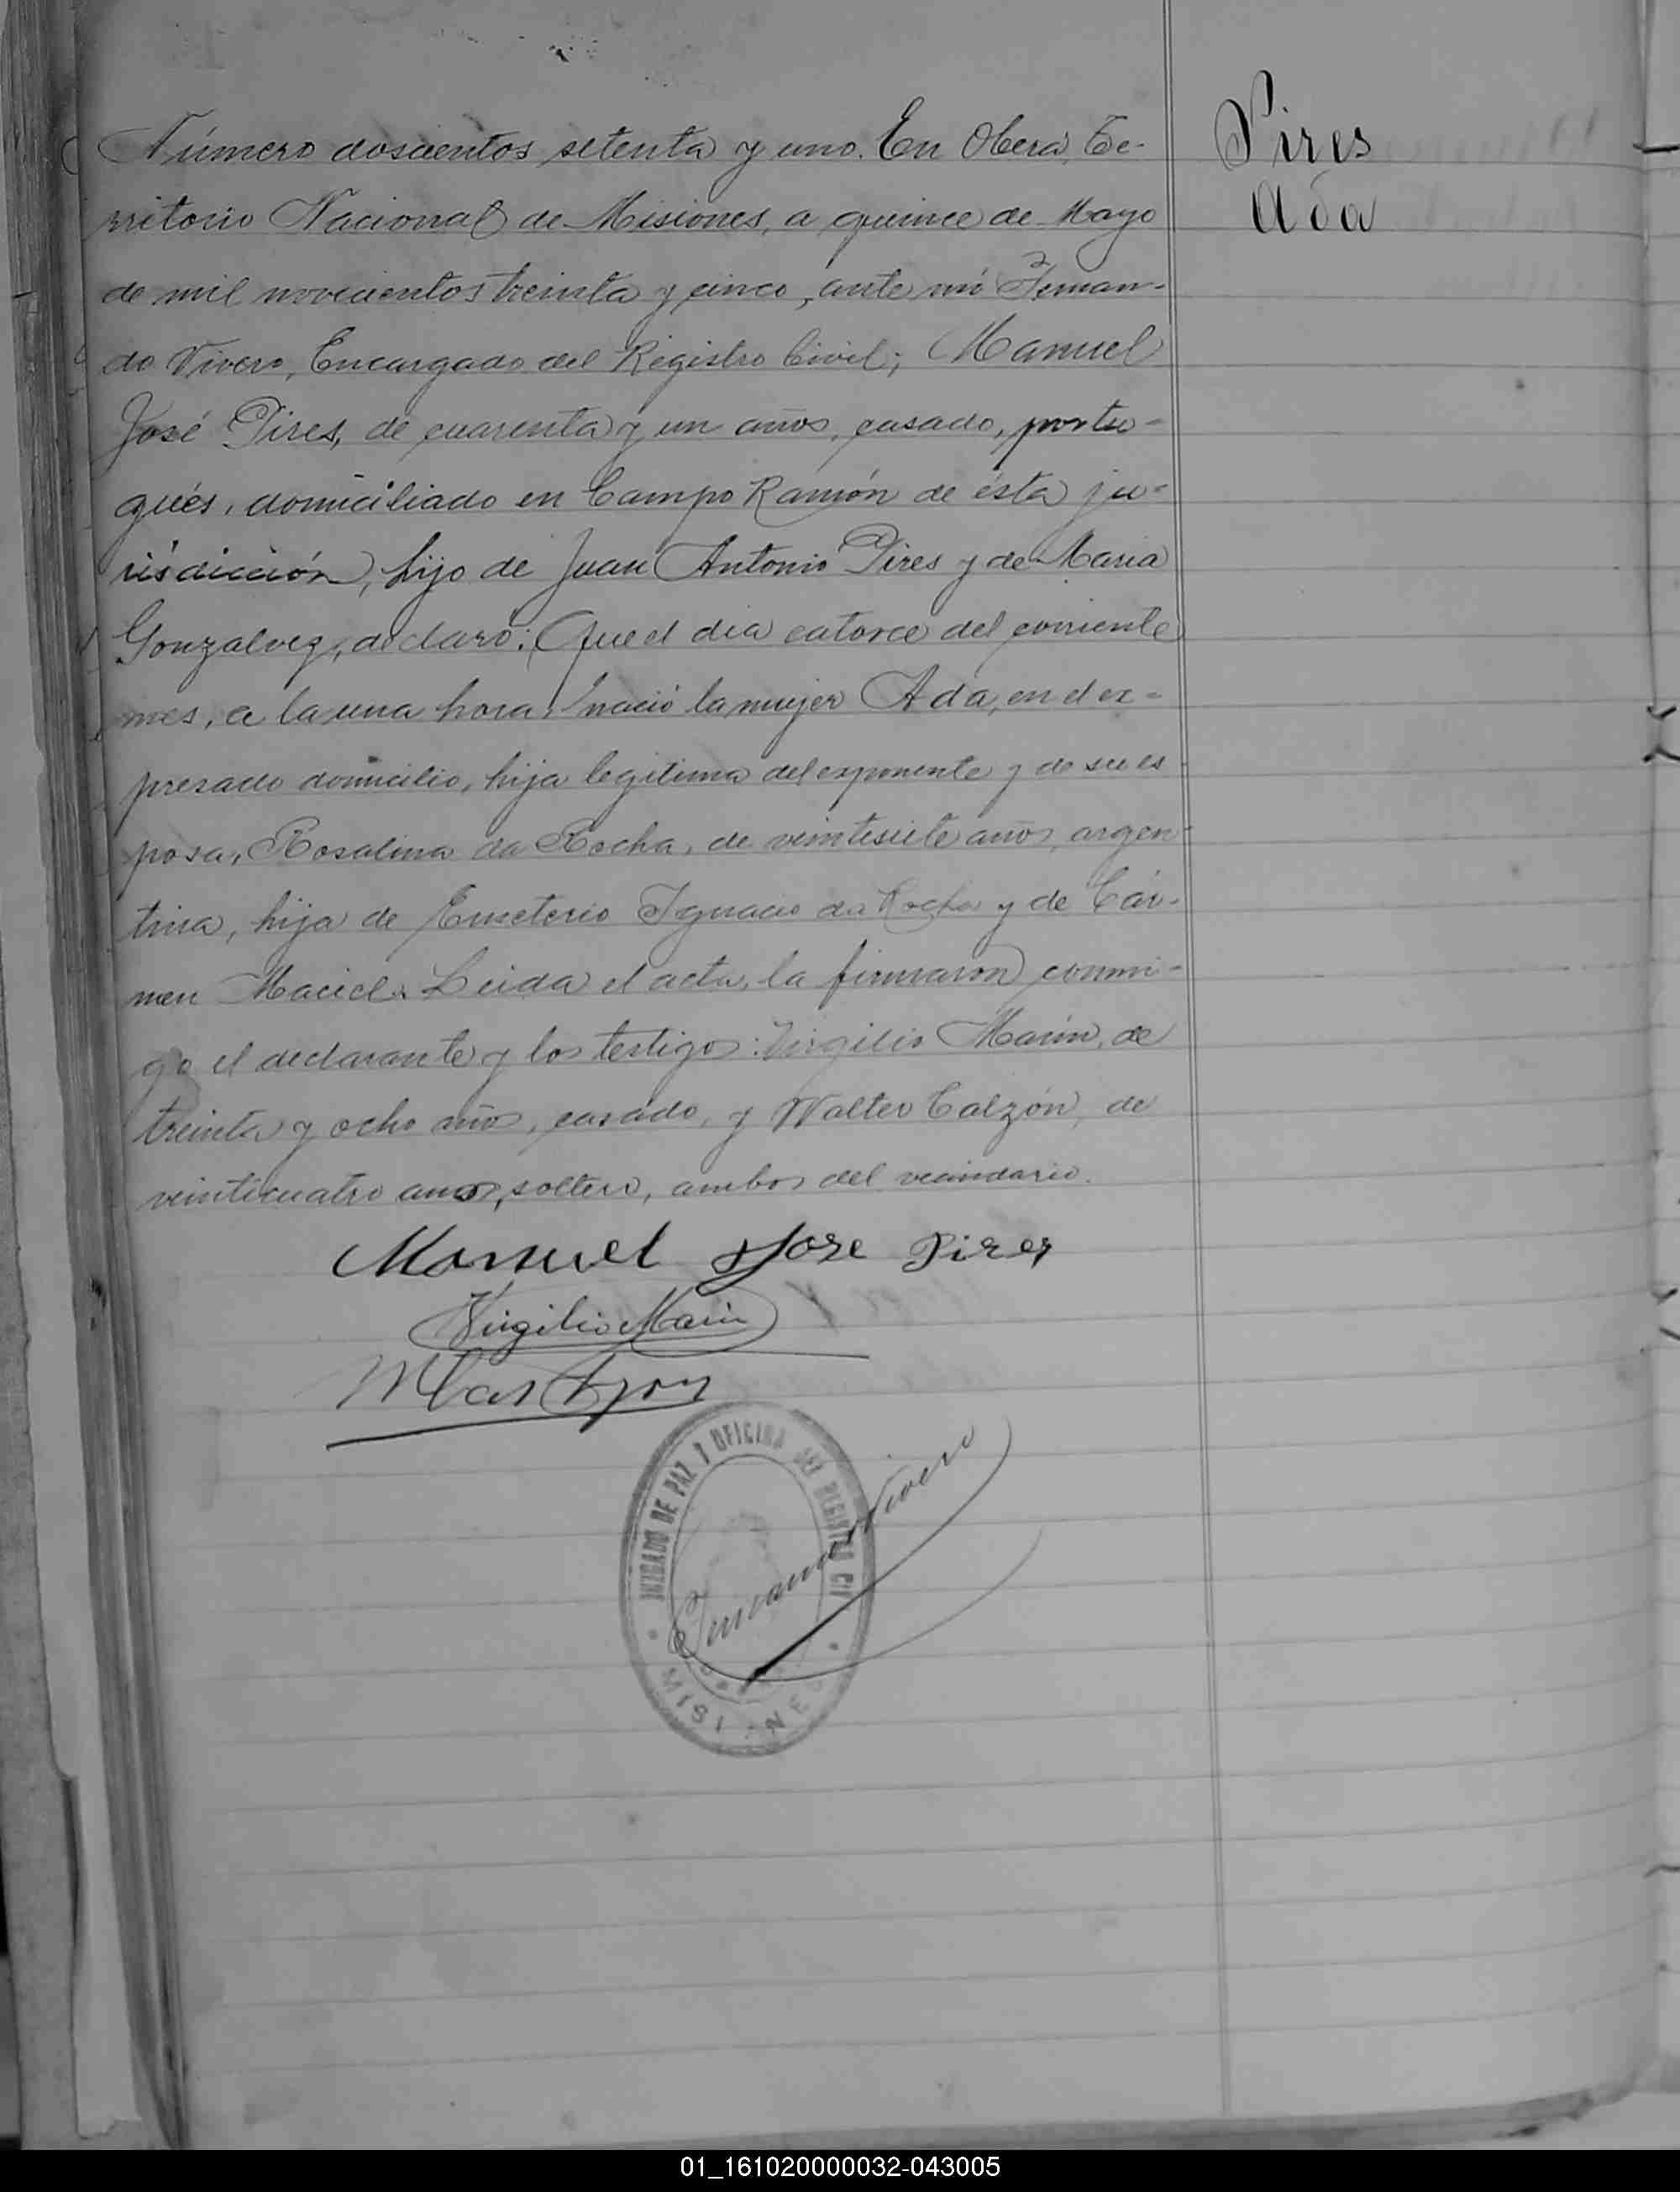 Número doscientos setenta y uno. En Oberá, Te-
rritorio Nacional de Misiones, a quince de Mayo
de mil novecientos treinta y cinco, ante mí Fernan-
do Vivero, Encargado del Registro Civil; Manuel
José Pires, de cuarenta y un años, casado, portu-
gués, domiciliado en Campo Ramón de ésta ju-
risdicción, hijo de Juan Antonio Pires y de Maria
Gonzalvez, declaró: Que el dia catorce del corriente
mes, a la una hora, nació la mujer Ada, en el ex-
presado domicilio, hija legitima del exponente y de su es
posa, Rosalina da Rocha, de veintisiete años, argen-
tina, hija de Emeterio Ignacio da Rocha y de Cár-
men Maciel. Leida el acta, la firmaron conmi-
go el declarante y los testigos: Virgilio Marin, de
treinta y ocho años, casado, y Walter Calzón, de
veinticuatro anos, soltero, ambos del vecindario.
Pires
Ada
Manuel Jose Pires
Virgilio Marin
JUZGADO DE PAZ Y OFICINA DEL REGISTRO CIVIL
Fernando Vivero
MISIONES
01_161020000032-043005